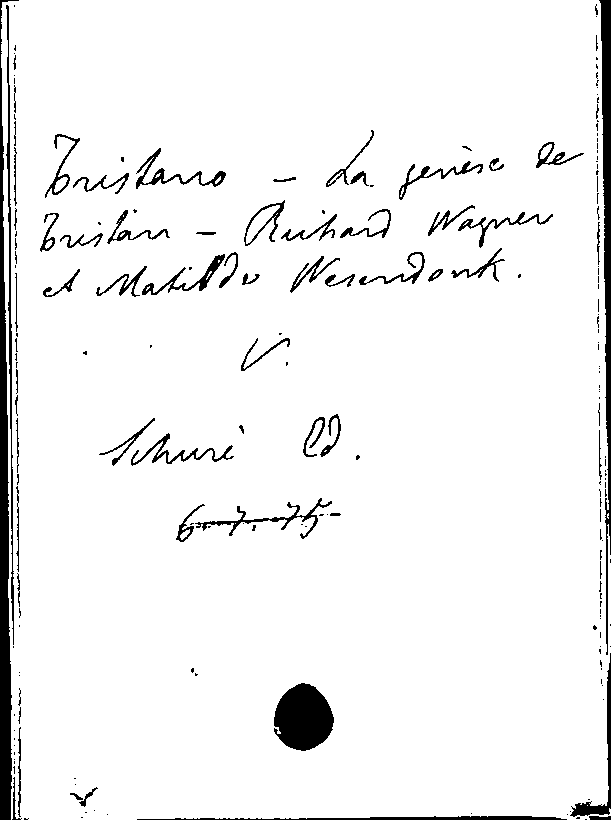 Tristano - La genèse de
Tristan - Richard Wagner
et Matilde Wesendonk.
V.
Schuré Ed.
6.7.75